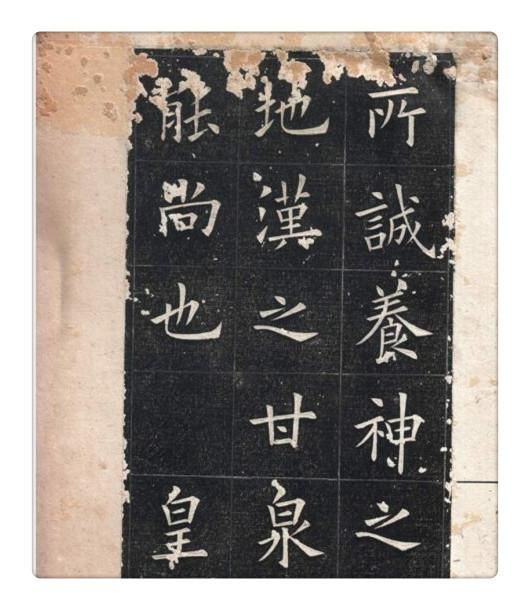 所誠養神之
地漢之甘泉
能尚也皇